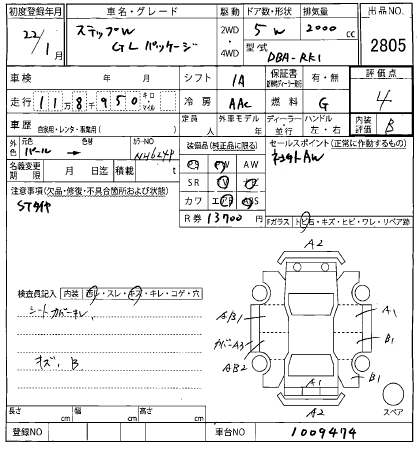 初度登録年月 車名・グレード 駆動 ドア数・形状 排気量 出品NO
22/1月 ステップW GL パッケージ 2WD・4WD 5 W 2000 cc 2805
型式 DBA-RK1
車検 年 月 シフト IA 保証書 有・無 評価点
走行 118950 キロ マイル 冷房 AAC 燃料 G 4
車歴 自家用・レンタ・事業用( ) 定員 人 外車モデル 年 ディーラー 並行 ハンドル 左・右 内装評価 B
外色 元色 パール → 色替 カラーNO NH624P 装備品(純正品に限る) セールスポイント(正常に作動するもの)
名義変更期限 月 日迄 積載 t AW
SR
注意事項(欠品・修復・不具合箇所および状態) カワ ABS
STタイヤ R券 13700 円
Fガラス トビ石・キズ・ヒビ・ワレ・リペア跡
検査員記入 内装 スレ・キズ・キレ・コゲ・穴
シートカバーキレ
キズ、B
A2
A/B1 A1
カバーA3 B1
AB2 B1
A1
A2
スペア
長さ cm 幅 cm 高さ cm
登録NO 車台NO 1009474